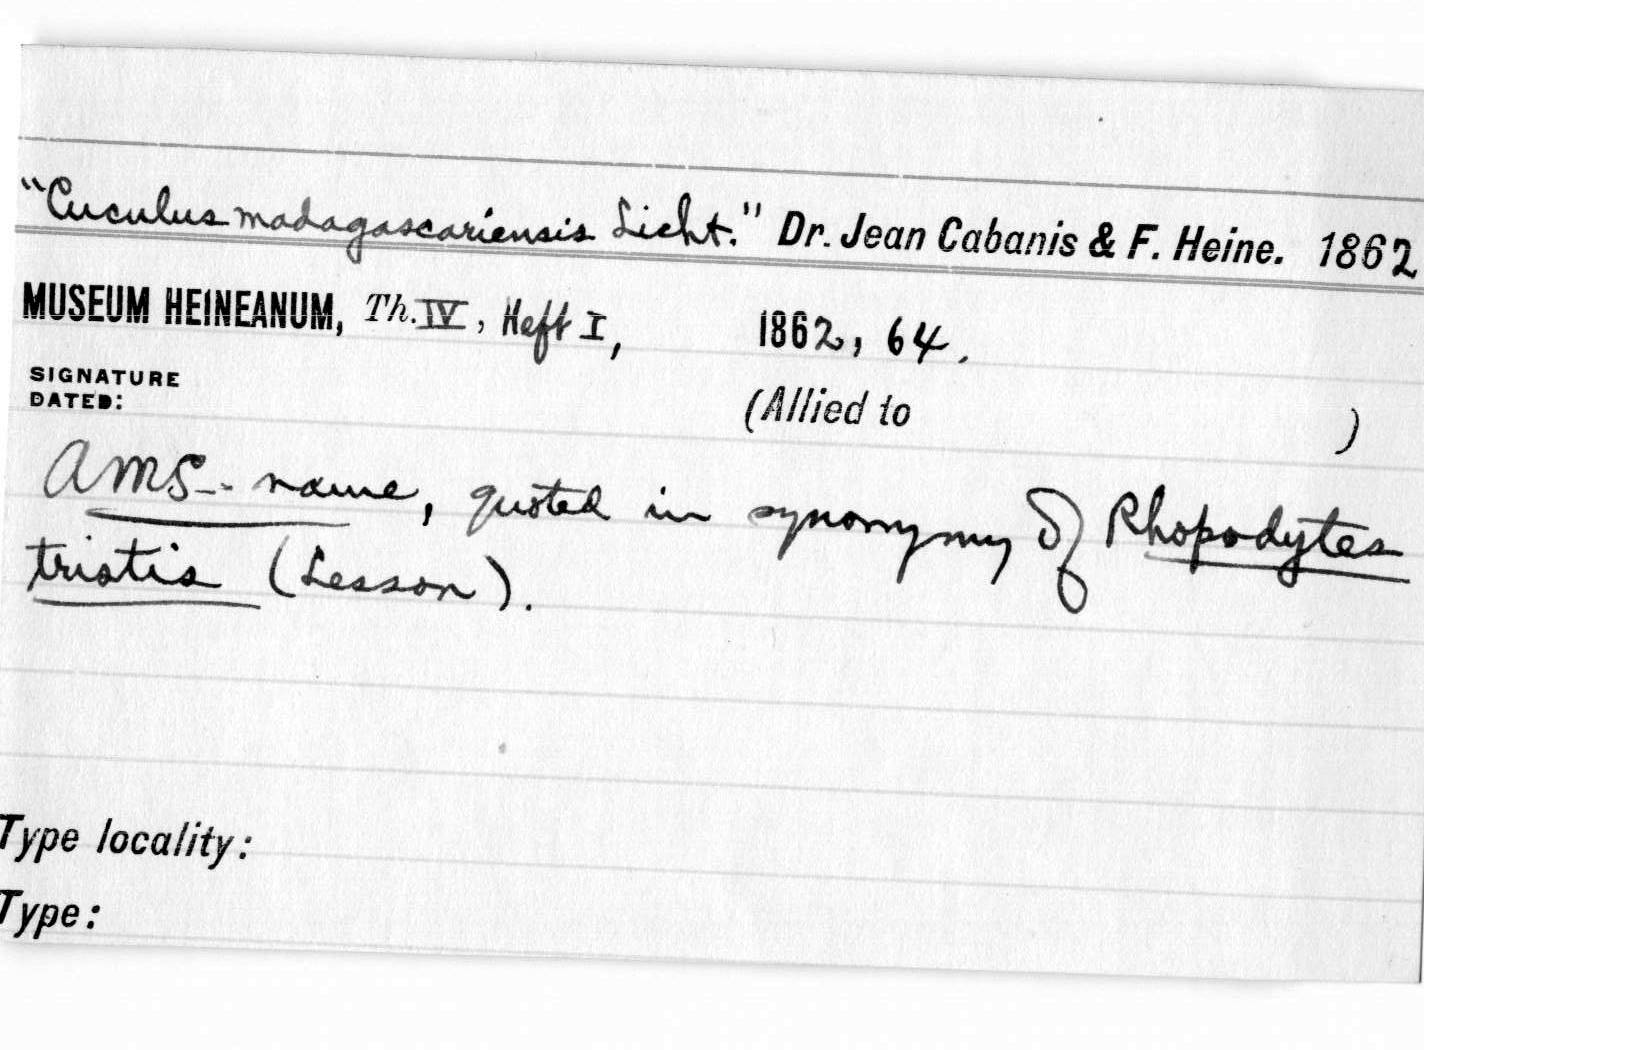 "Cuculus madagascariensis Licht." Dr. Jean Cabanis & F. Heine. 1862
MUSEUM HEINEANUM, Th. IV, Heft I, 1862, 64.
SIGNATURE
DATED: (Allied to )
A MS. name, quoted in synonymy of Rhopodytes
tristis (Lesson).
Type locality:
Type: